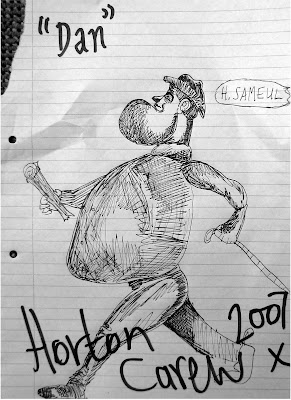 "Dan"
H. SAMEUL
Horton
Carew
2007
x